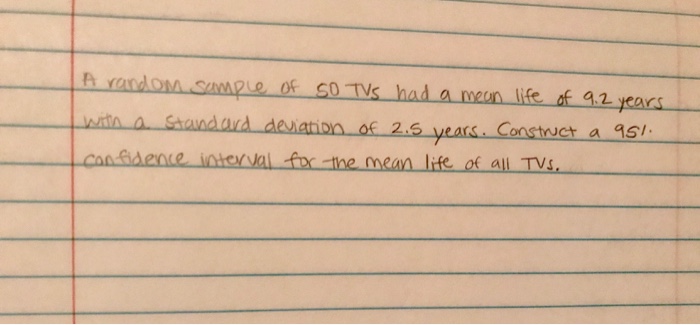 A random sample of 50 TVs had a mean life of 9.2 years
with a standard deviation of 2.5 years. Construct a 95%
confidence interval for the mean life of all TVs.